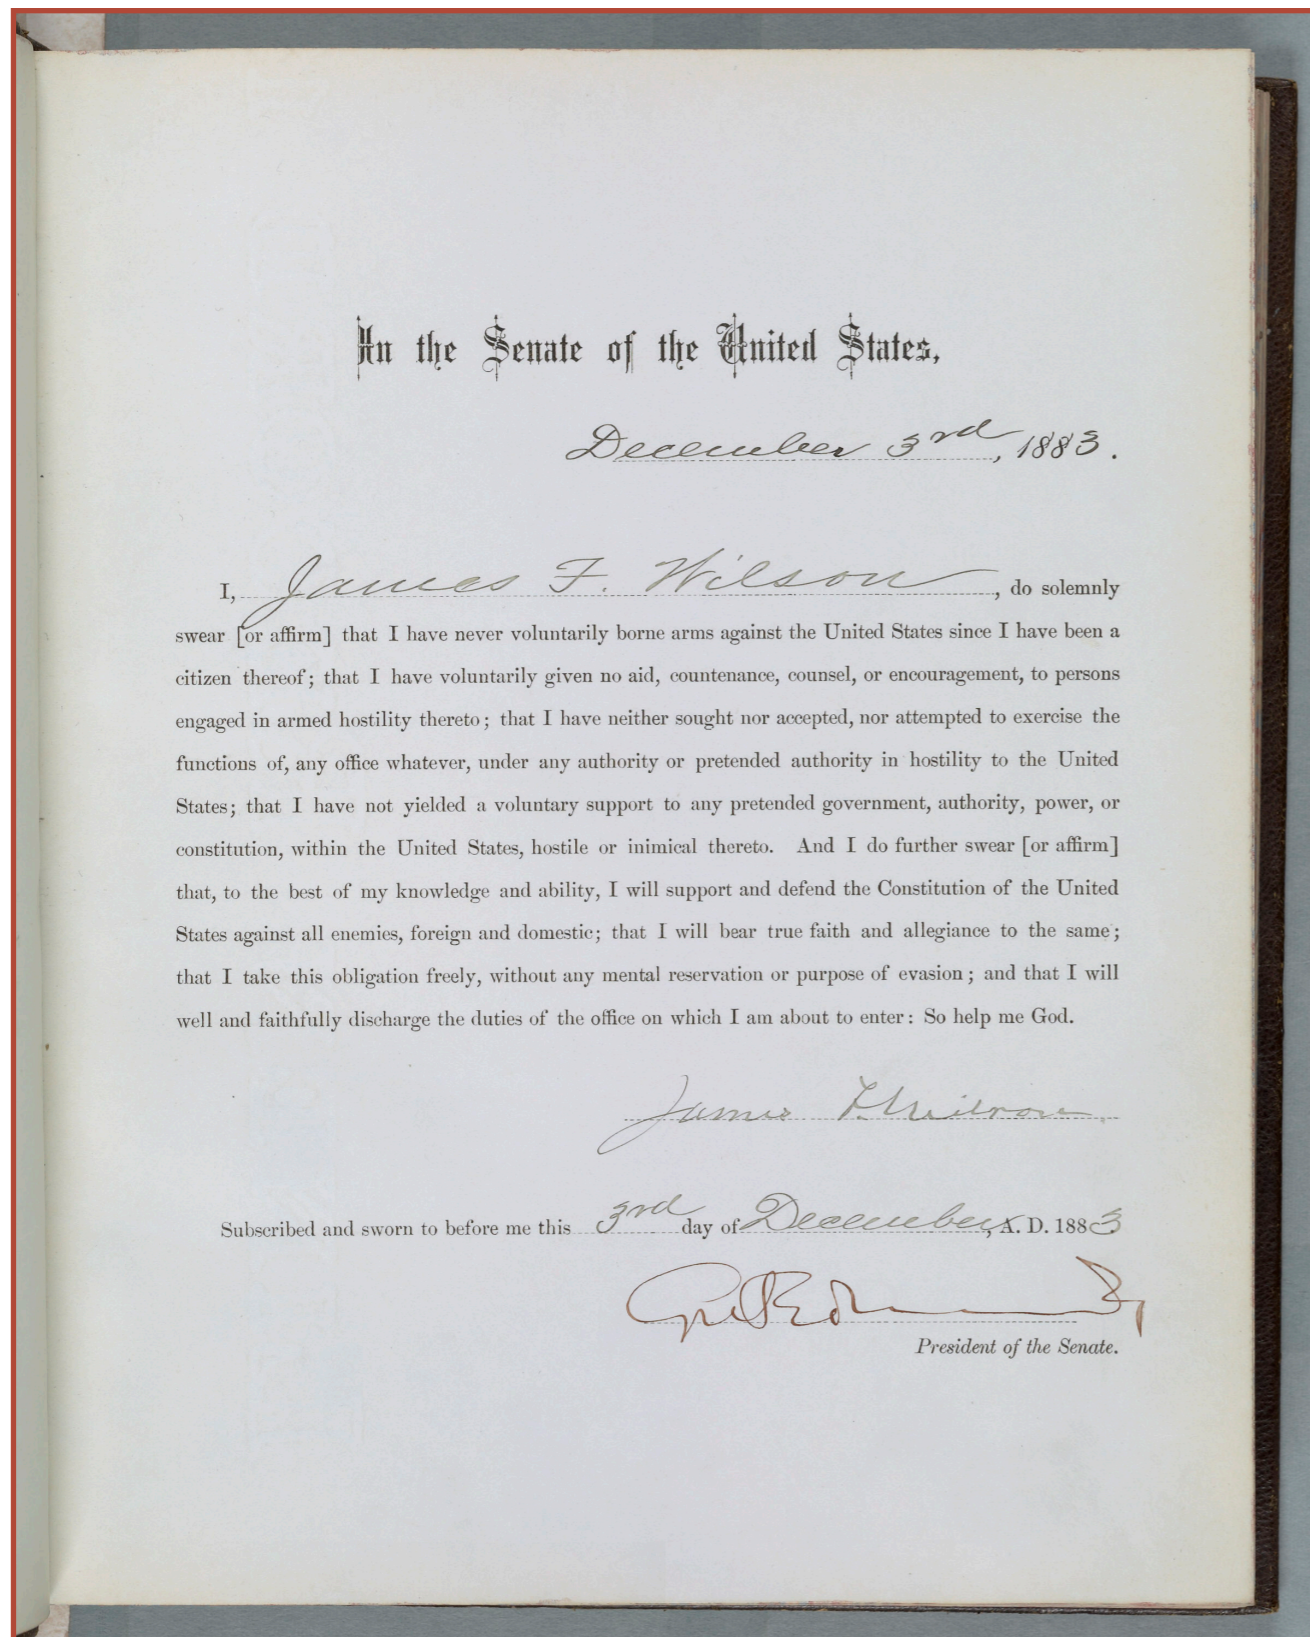 In the Senate of the United States,
December 3rd, 1883.
I, James F. Wilson, do solemnly
swear [or affirm] that I have never voluntarily borne arms against the United States since I have been a
citizen thereof; that I have voluntarily given no aid, countenance, counsel, or encouragement, to persons
engaged in armed hostility thereto; that I have neither sought nor accepted, nor attempted to exercise the
functions of, any office whatever, under any authority or pretended authority in hostility to the United
States; that I have not yielded a voluntary support to any pretended government, authority, power, or
constitution, within the United States, hostile or inimical thereto. And I do further swear [or affirm]
that, to the best of my knowledge and ability, I will support and defend the Constitution of the United
States against all enemies, foreign and domestic; that I will bear true faith and allegiance to the same;
that I take this obligation freely, without any mental reservation or purpose of evasion; and that I will
well and faithfully discharge the duties of the office on which I am about to enter: So help me God.
James F. Wilson
Subscribed and sworn to before me this 3rd day of December, A. D. 1883
Geo F Edmunds
President of the Senate.